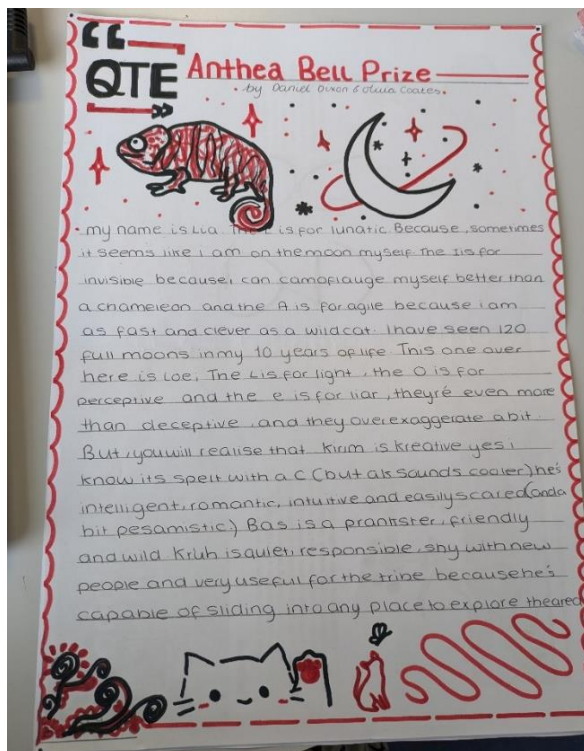 “
QTE Anthea Bell Prize
by Daniel Dixon & Olivia Coates.
my name is Lia. The L is for lunatic. Because, sometimes
it seems like i am on the moon myself. The I is for
invisible because i can camoflauge myself better than
a chameleon and the A is for agile because i am
as fast and clever as a wildcat. I have seen 120
full moons in my 10 years of life. This one over
here is Loe. The L is for light, the O is for
perceptive and the e is for liar, they're even more
than deceptive, and they overexaggerate a bit.
But, you will realise that Kirim is kreative yes i
know its spelt with a C (but a k sounds cooler) he's
intelligent, romantic, intuitive and easily scared (and a
bit pesamistic.) Bas is a prankster, friendly
and wild Kruh is quiet, responsible, shy with new
people and very useful for the tribe because he's
capable of sliding into any place to explore the area